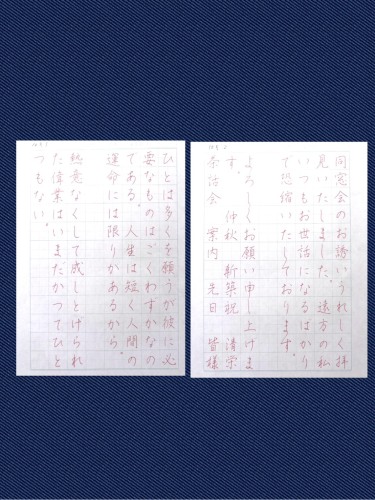 同窓会のお誘いうれしく拝
見いたしました。遠方の私
いつもお世話になるばかり
で恐縮いたしております。
よろしくお願い申し上げま
す。 仲秋 新築祝 清栄
案内 先日 皆様
ひとは多くを願うが彼に必
要なものはごくわずかなの
である。人生は短く人間の
運命には限りがあるから。
熱意なくして成しとげられ
た偉業はいまだかつてひと
つもない。